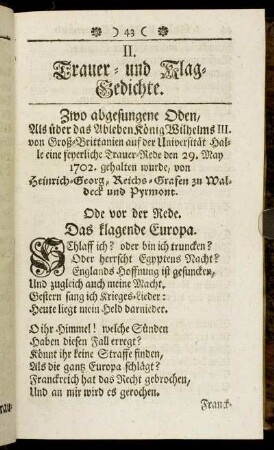 ) 43 (
II.
Trauer- und Klag-
Gedichte.
Zwo abgesungene Oden,
Als über das Ableben König Wilhelms III.
von Groß-Brittanien auf der Universität Hal-
le eine feyerliche Trauer-Rede den 29. May
1702. gehalten wurde, von
Heinrich-Georg, Reichs-Grafen zu Wal-
deck und Pyrmont.
Ode vor der Rede.
Das klagende Europa.
Schlaff ich? oder bin ich truncken?
Oder herrscht Egyptens Nacht?
Englands Hoffnung ist gesuncken,
Und zugleich auch meine Macht.
Gestern sang ich Krieges-Lieder:
Heute liegt mein Held darnieder.
O ihr Himmel! welche Sünden
Haben diesen Fall erregt?
Könnt ihr keine Straffe finden,
Als die gantz Europa schlägt?
Franckreich hat das Recht gebrochen,
Und an mir wird es gerochen.
Franck-